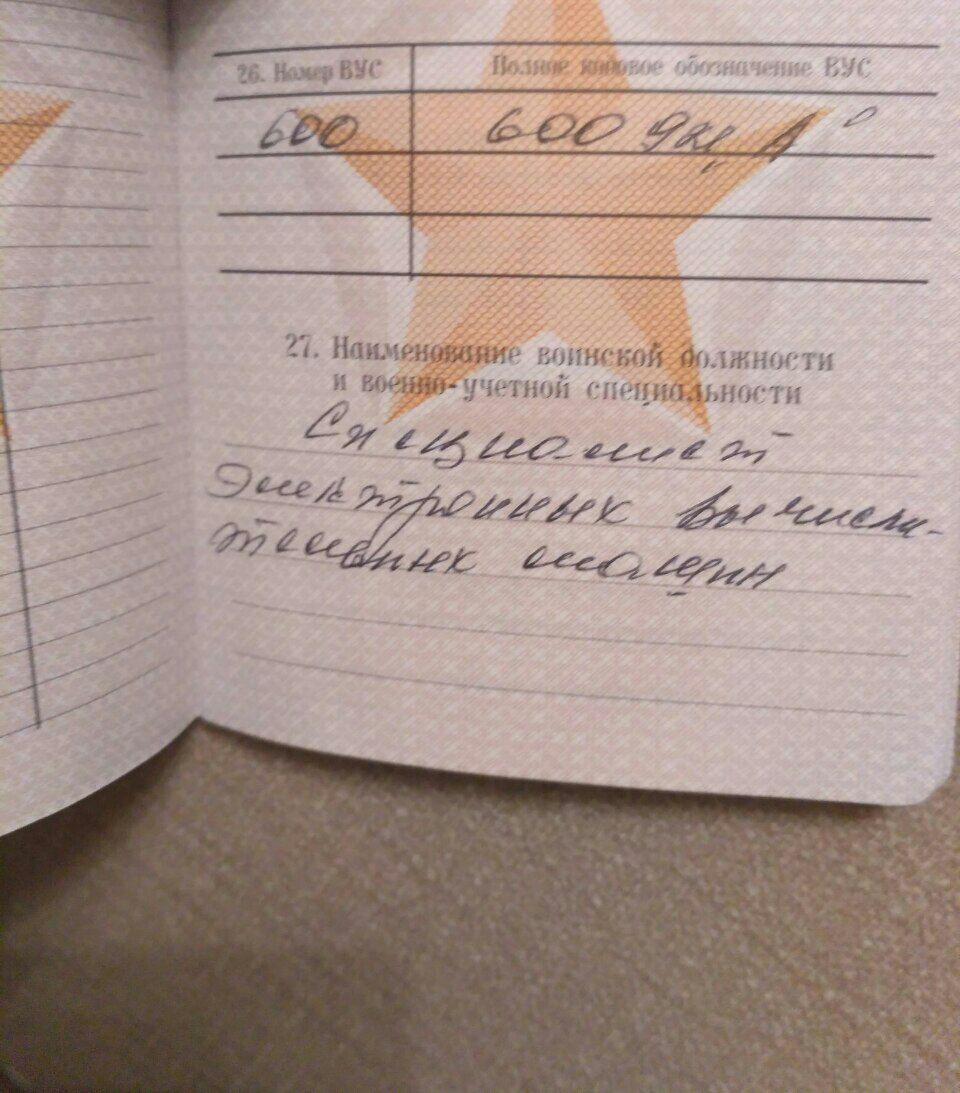 26. Номер ВУС Полное кодовое обозначение ВУС
600 600 А
27. Наименование воинской должности
и военно-учетной специальности
Специалист
электронных вычисли-
тельных машин